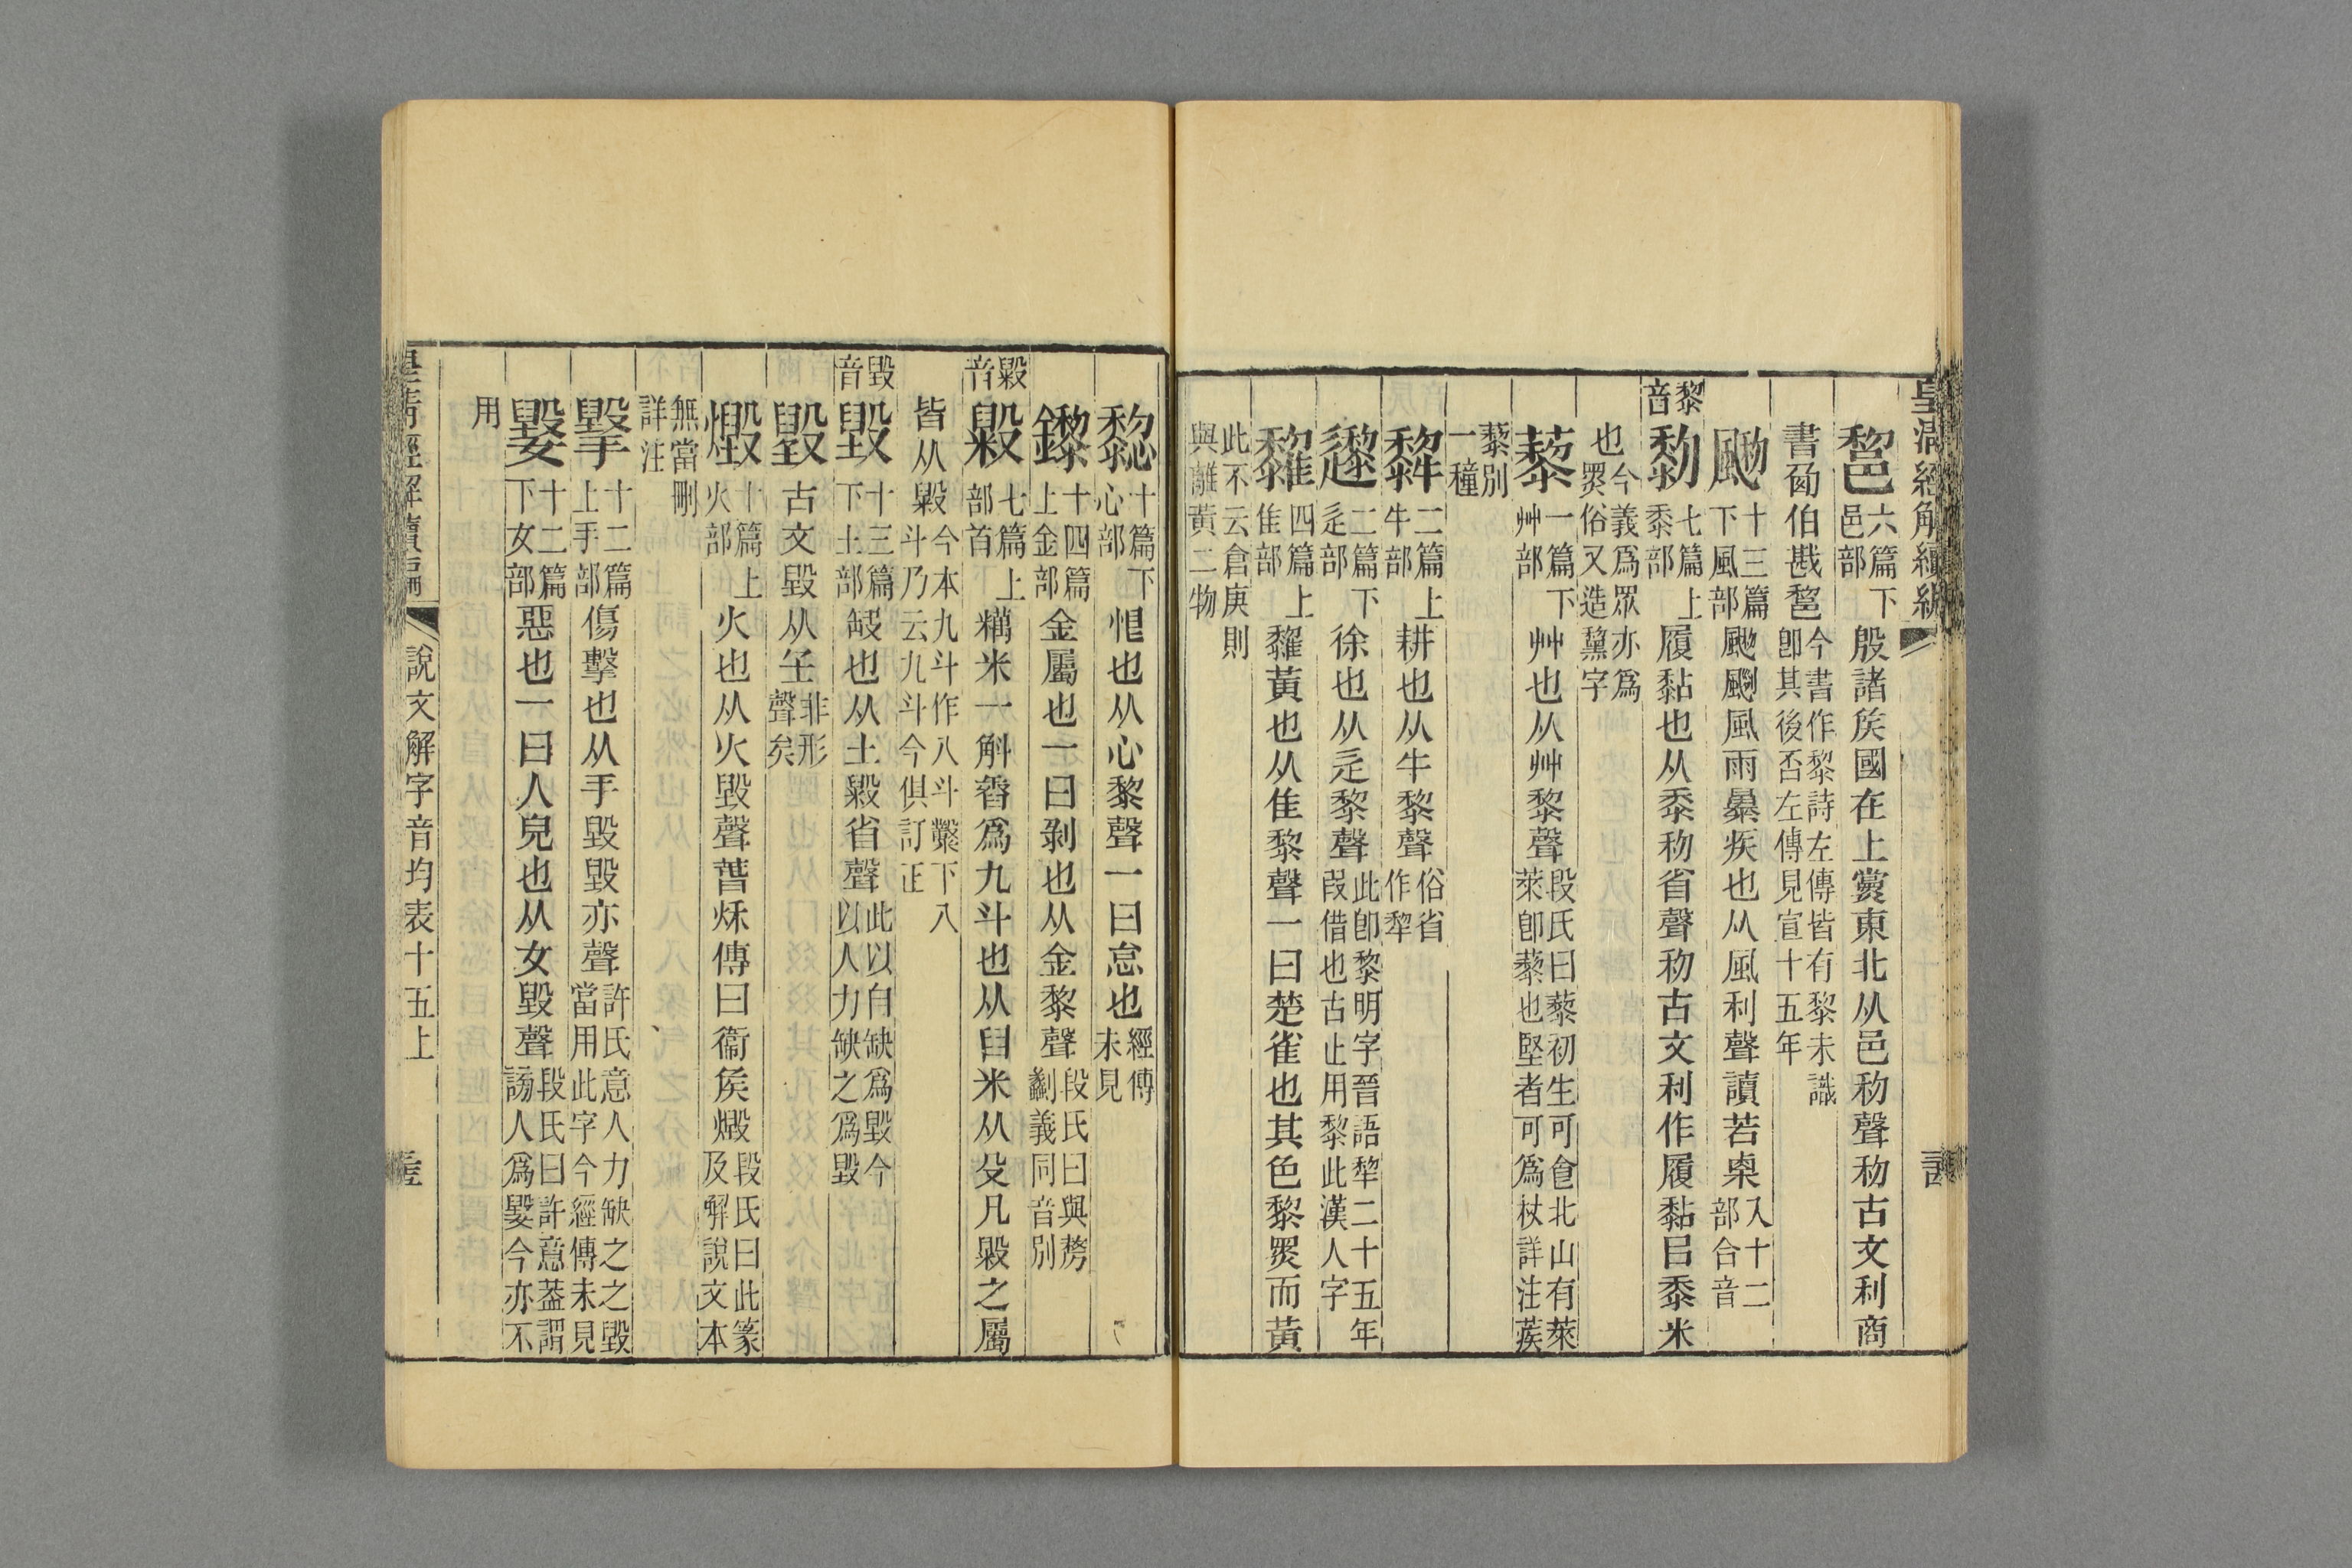 皇清經解續編
𨛫六篇下邑部殷諸矦國在上黨東北从邑𥝢聲𥝢古文利商
書𠧟伯戡𨛫今書作黎詩左傳皆有黎未識卽其後否左傳見宣十五年
颲十三篇下風部颲颲風雨暴疾也从風利聲讀若㮚入十二部合音
黎音
黎七篇上黍部履黏也从黍𥝢省聲𥝢古文利作履黏㠯黍米
也今義爲眾亦爲罴俗又造黧字
藜一篇下艸部艸也从艸黎聲段氏曰藜初生可食北山有萊萊卽藜也堅者可爲杖詳注蒺
藜別一穜
犂二篇上牛部耕也从牛黎聲俗省作犂
邌二篇下辵部徐也从辵黎聲此卽黎明字晉語犂二十五年叚借也古止用黎此漢人字
雡四篇上隹部雡黃也从隹黎聲一曰楚雀也其色黎黑而黃
此不云倉庚則與離黃二物
𢤂十篇下心部恨也从心黎聲一曰怠也經傳未見
鑗十四篇上金部金屬也一曰剝也从金黎聲段氏曰與剺劙義同音別
毇音
毇七篇上部首糲米一斛舂爲九斗也从臼米从殳凡毇之屬
皆从毇今本九斗作八斗糳下八斗乃云九斗今俱訂正
毀音
毀十三篇下土部缺也从土毇省聲此以臼缺爲毀今以人力缺之爲毀
𡐦古文毀从𡈼非形聲矣
燬十篇上火部火也从火毀聲春秋傳曰衞矦燬段氏曰此篆及解說文本
無當刪詳注
擊十二篇上手部傷擊也从手毀毀亦聲許氏意人力缺之之毀當用此字今經傳未見
嬰十二篇下女部惡也一曰人皃也从女毀聲段氏曰許意蓋謂謗人爲嬰今亦不
用
皇清經解續編
說文解字音均表十五上